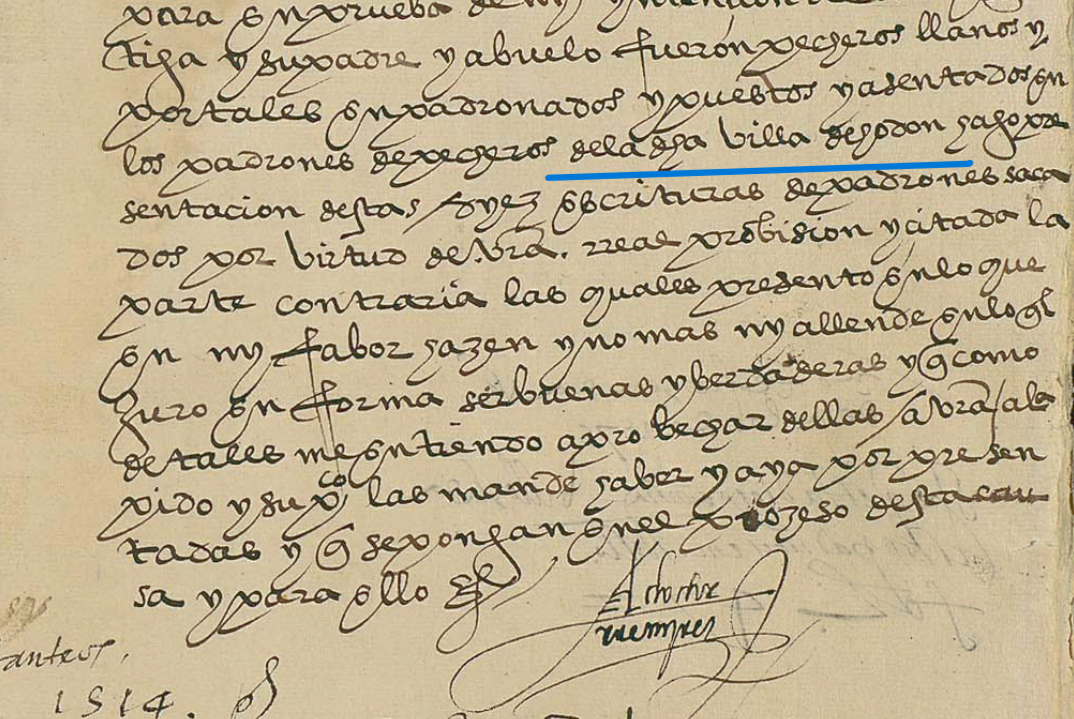 para en prueba de my yntención
tiga y su padre y abuelo fueron pecheros llanos y
por tales enpadronados y puestos y asentados en
los padrones de pecheros de la dha villa de hodon hago pre
sentacion destas diez escrituras de padrones saca
dos por virtud de vra. rreal probision y citada la
parte contraria las quales presento en lo que
en my fabor hazen y no mas ny allende en lo ql
Juro en forma ser buenas y berdaderas y q como
de tales me entiendo aprobechar dellas a vra al
pido y supco las mande haber y aya por presen
tadas y q se pongan en el prozeso desta cau
sa y para ello
El doctor
anteos.
1514.